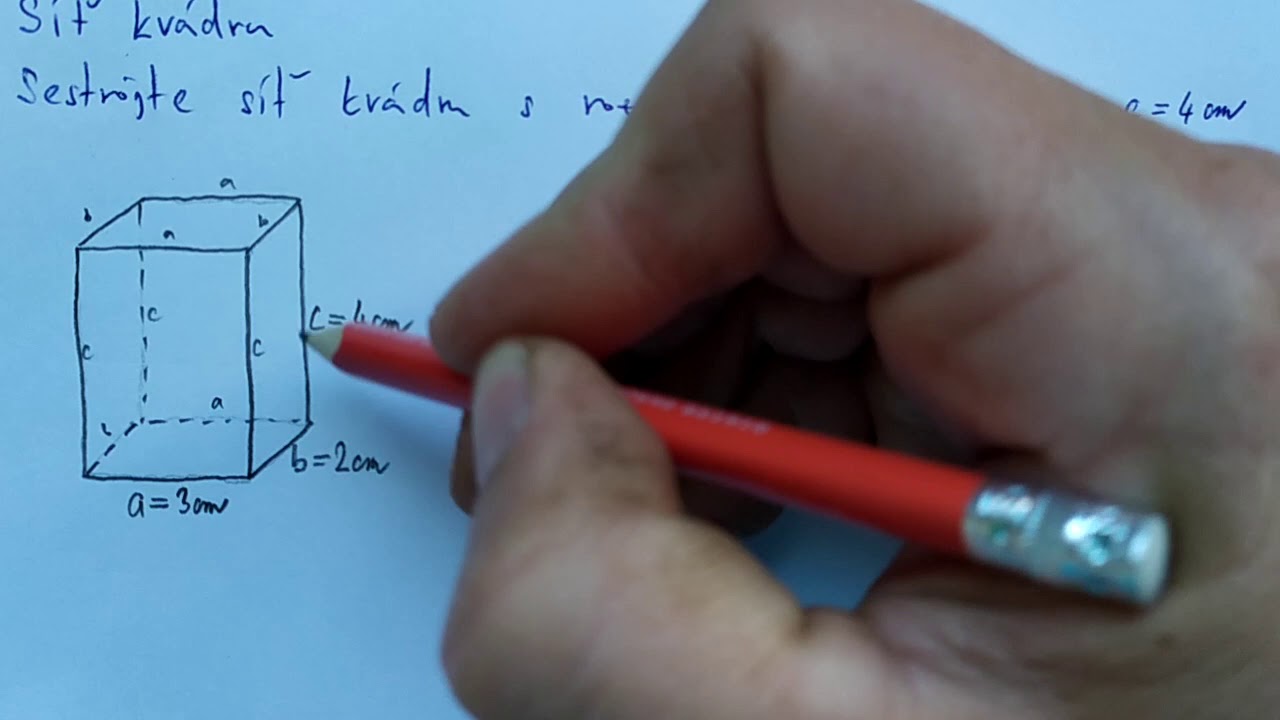 Síť kvádru
Sestrojte síť kvádru s c = 4 cm
a
b
b
a
c
c = 4 cm
c
c
a
b
b = 2 cm
a = 3 cm